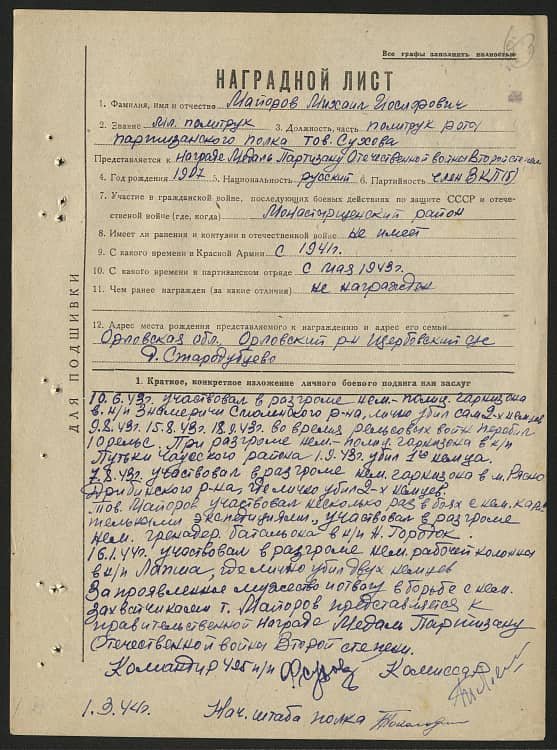 Все графы заполнить полностью
НАГРАДНОЙ ЛИСТ
1. Фамилия, имя и отчество Майоров Михаил Иосифович
2. Звание мл. политрук 3. Должность, часть политрук роты
партизанского полка тов. Сухова
Представляется к награде Медаль Партизану Отечественной войны Второй степени
4. Год рождения 1907 5. Национальность русский 6. Партийность член ВКП(б)
7. Участие в гражданской войне, последующих боевых действиях по защите СССР и отече-
ственной войне (где, когда) Монастырщенский район
8. Имеет ли ранения и контузии в отечественной войне не имеет
9. С какого времени в Красной Армии с 1941г.
10. С какого времени в партизанском отряде с мая 1943г.
11. Чем ранее награжден (за какие отличия) не награжден
12. Адрес места рождения представляемого к награждению и адрес его семьи
Орловская обл., Орловский р-н Щербовский с/с
д. Стародубцево
ДЛЯ ПОДШИВКИ
1. Краткое, конкретное изложение личного боевого подвига или заслуг
10.6.43г. участвовал в разгроме нем.-полиц. гарнизона
в н/п Знамеричи Смоленского р-на, лично убил сам 2-х немцев
9.8.43г. 15.8.43г. 18.9.43г. во время рельсовых войн перебил
10 рельс. При разгроме нем.-полиц. гарнизона в н/п
Путьки Чаусского района 1.9.43г. убил 1го немца.
7.8.43г. участвовал в разгроме нем. гарнизона в м. Рясно
Дрибинского р-на, где лично убил 2-х немцев.
Тов. Майоров участвовал несколько раз в боях с нем. кара-
тельными экспедициями, участвовал в разгроме
нем. гренадер. батальона в н/п Н. Городок.
16.1.44г. участвовал в разгроме нем. рабочей колонны
в н/п Лапиа, где лично убил двух немцев
За проявленное мужество и отвагу в борьбе с нем.
захватчиками т. Майоров представляется к
правительственной награде Медаль Партизану
Отечественной войны Второй степени.
Командир части Комиссар
1.3.44г. Нач. штаба полка